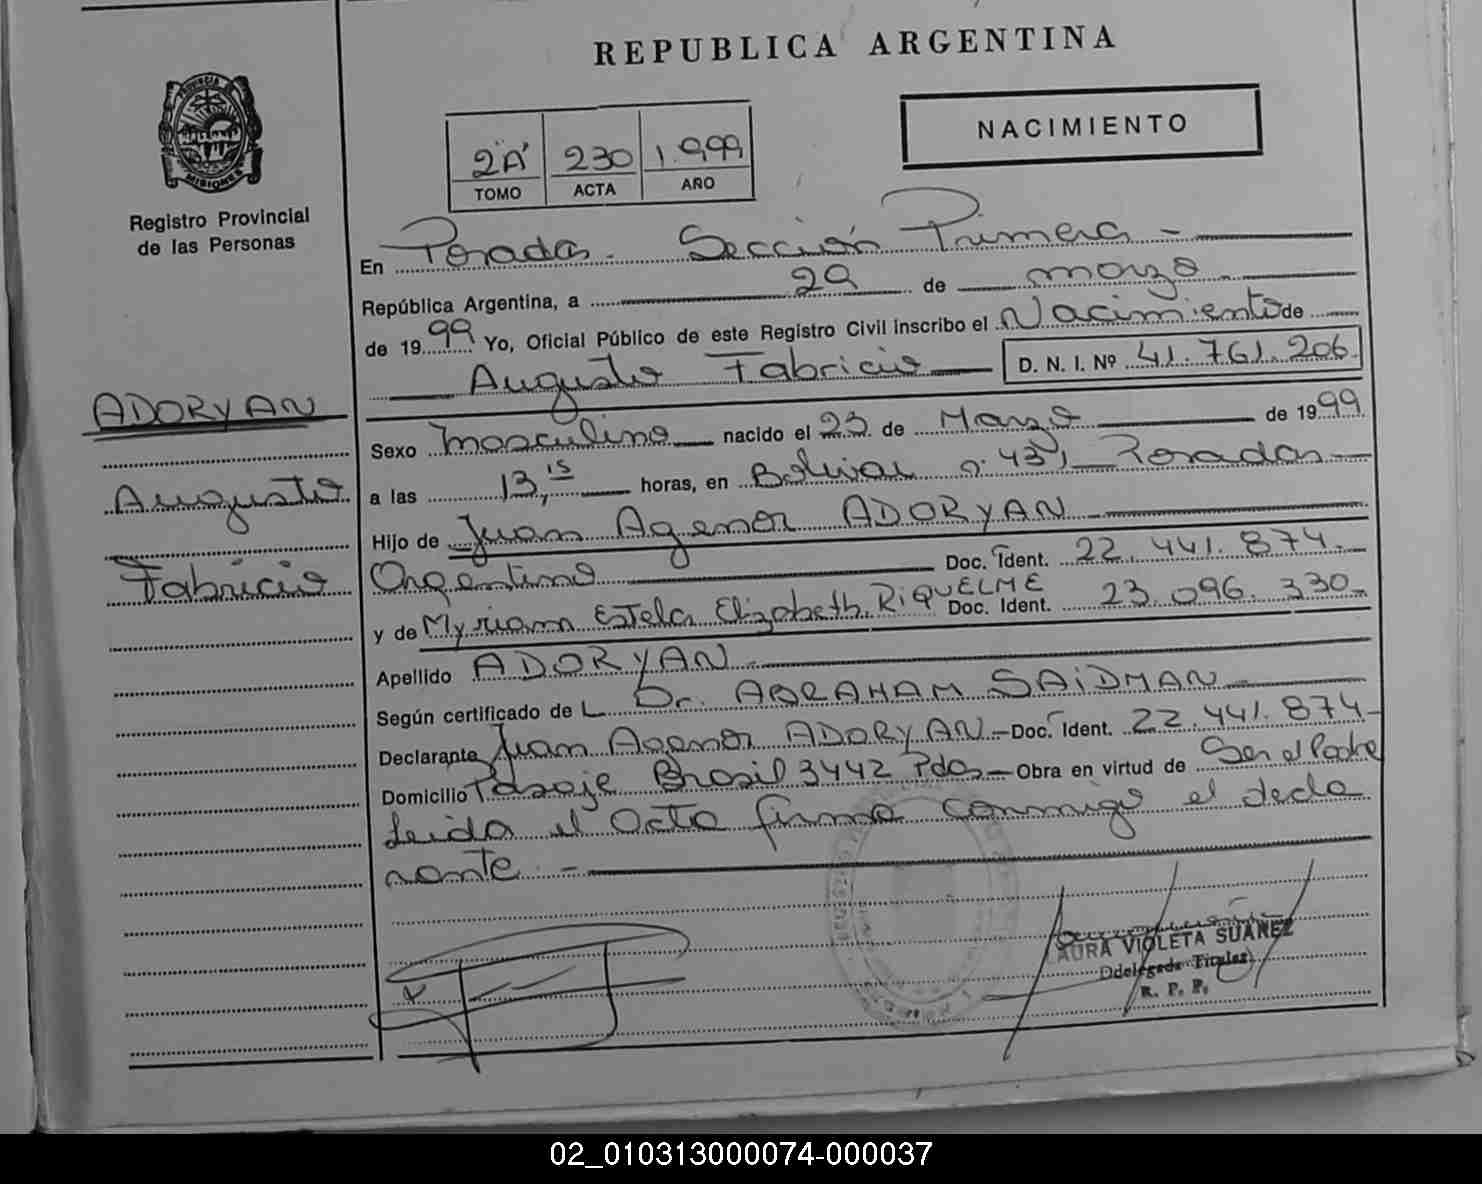 REPUBLICA ARGENTINA
NACIMIENTO
PROVINCIA DE
MISIONES
Registro Provincial
de las Personas
2"A" 230 1.999
TOMO ACTA AÑO
En Posadas. Sección Primera -
República Argentina, a 29 de marzo
de 1999 Yo, Oficial Público de este Registro Civil inscribo el Nacimiento de
Augusto Fabricio D. N. I. Nº 41.761.206
ADORYAN
Augusto
Fabricio
Sexo masculino nacido el 23 de Marzo de 1999
a las 13,15 horas, en Bolivar n° 431 Posadas
Hijo de Juan Agenor ADORYAN
Argentino Doc. Ident. 22.441.874.
y de Myriam Estela Elizabeth RIQUELME Doc. Ident. 23.096.330
Apellido ADORYAN
Según certificado de L Dr. ABRAHAM SAIDMAN
Declarante Juan Agenor ADORYAN Doc. Ident. 22.441.874
Domicilio Pasaje Brasil 3442 Pdas Obra en virtud de Ser el Padre
Leida el Acta firma conmigo el decla
rante. -
LAURA VIOLETA SUAREZ
Ddelegada Titular
R. P. P.
02_010313000074-000037